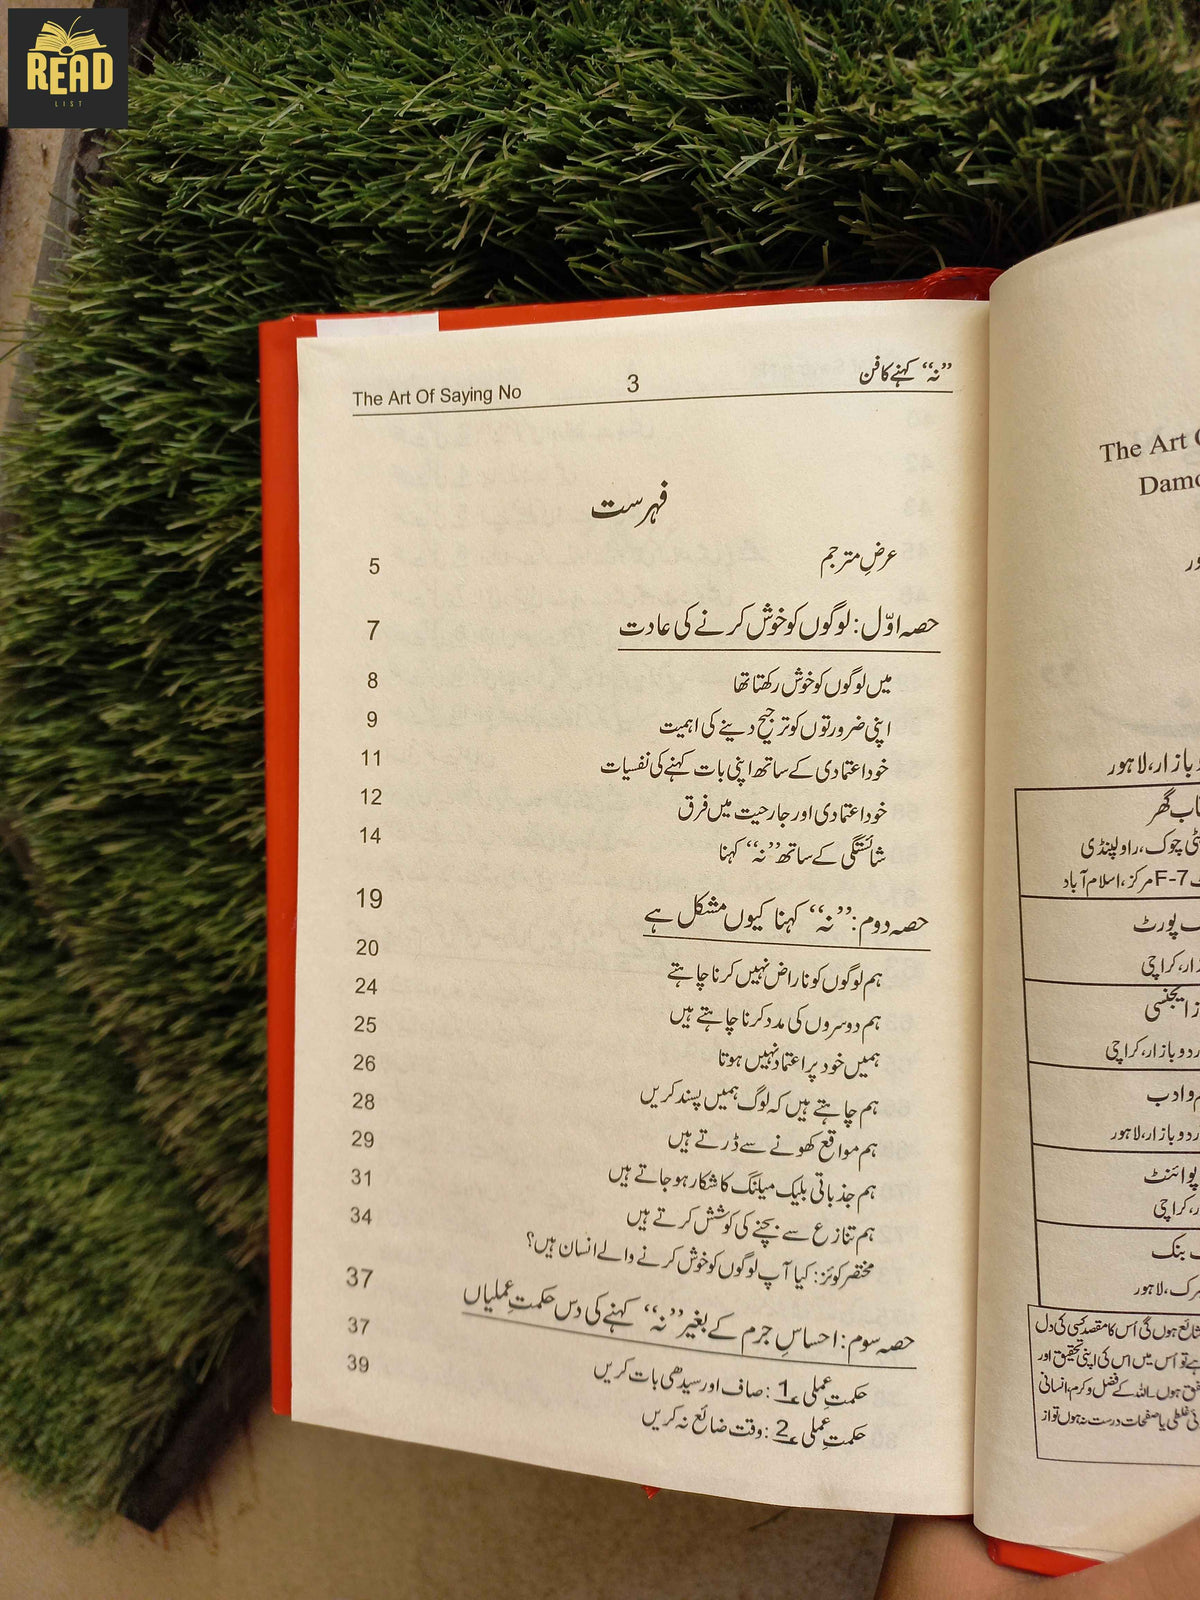 READ
LIST
The Art Of Saying No 3 ”نہ“ کہنے کا فن
فہرست
عرضِ مترجم 5
حصہ اوّل: لوگوں کو خوش کرنے کی عادت 7
میں لوگوں کو خوش رکھتا تھا 8
اپنی ضرورتوں کو ترجیح دینے کی اہمیت 9
خود اعتمادی کے ساتھ اپنی بات کہنے کی نفسیات 11
خود اعتمادی اور جارحیت میں فرق 12
شائستگی کے ساتھ ”نہ“ کہنا 14
حصہ دوم: ”نہ“ کہنا کیوں مشکل ہے 19
ہم لوگوں کو ناراض نہیں کرنا چاہتے 20
ہم دوسروں کی مدد کرنا چاہتے ہیں 24
ہمیں خود پر اعتماد نہیں ہوتا 25
ہم چاہتے ہیں کہ لوگ ہمیں پسند کریں 26
ہم مواقع کھونے سے ڈرتے ہیں 28
ہم جذباتی بلیک میلنگ کا شکار ہو جاتے ہیں 29
ہم تنازع سے بچنے کی کوشش کرتے ہیں 31
مختصر کوئز: کیا آپ لوگوں کو خوش کرنے والے انسان ہیں؟ 34
حصہ سوم: احساسِ جرم کے بغیر ”نہ“ کہنے کی دس حکمتِ عملیاں 37
حکمتِ عملی 1: صاف اور سیدھی بات کریں 37
حکمتِ عملی 2: وقت ضائع نہ کریں 39
The Art
Damo
بازار، لاہور
چوک، راولپنڈی
F-7 مرکز، اسلام آباد
پورٹ
کراچی
ایجنسی
اردو بازار، کراچی
ادب
اردو بازار، لاہور
پوائنٹ
کراچی
بنک
لاہور
شائع ہوں گی اُس کا مقصد کسی کی دل
ہے تو اُس میں اس کی اپنی تحقیق اور
ہوں۔ اللہ کے فضل و کرم، انسانی
غلطی یا صفحات درست نہ ہوں تو از